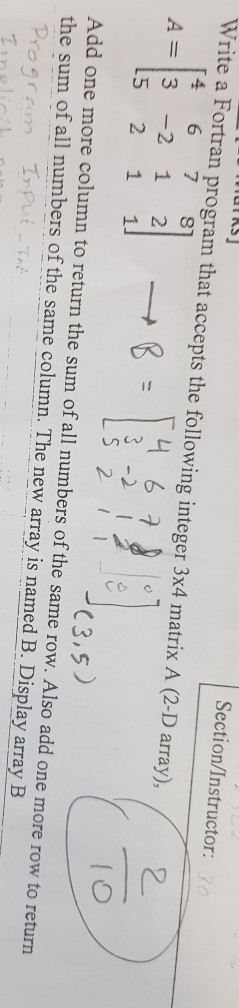 Section/Instructor: 30
Write a Fortran program that accepts the following integer 3x4 matrix A (2-D array),
[4 6 7 8]
A = [3 -2 1 2] → B = [4 6 7 8 0]
[5 2 1 1] [3 -2 1 2 0]
[5 2 1 1] (3,5)
2/10
Add one more column to return the sum of all numbers of the same row. Also add one more row to return
the sum of all numbers of the same column. The new array is named B. Display array B
Program Input_Int
Implicit none